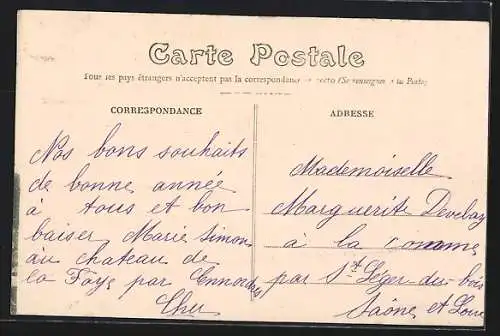 Carte Postale
Tous les pays étrangers n'acceptent pas la correspondance au recto (Se renseigner à la Poste)
CORRESPONDANCE
ADRESSE
Nos bons souhaits
de bonne année
à tous et bon
baiser Marie Simon
au chateau de
la Faye par Ennordres
Cher
Mademoiselle
Marguerite
à la comme
par St Léger-des-bois
Saône et Loire